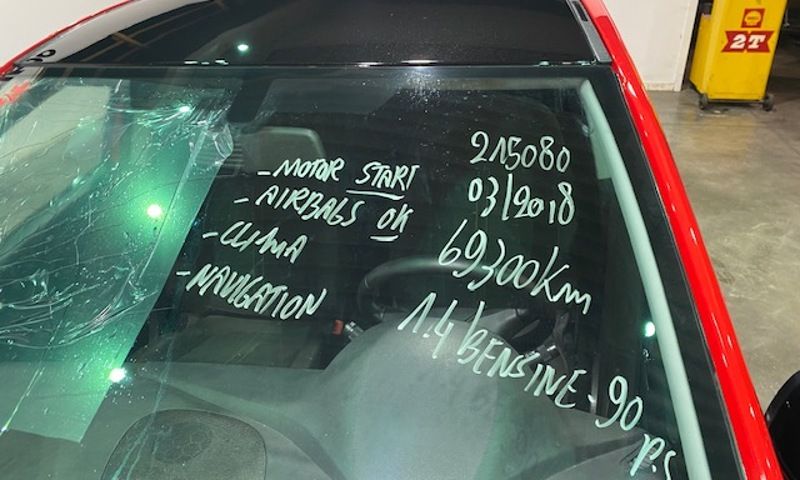 - MOTOR START
- AIRBAGS OK
- CLIMA
- NAVIGATION
215080
03/2018
69300Km
1.4 BENSINE - 90 P.S
2T